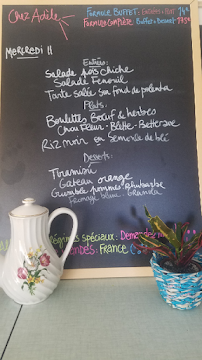 Chez Adèle
FORMULE BUFFET:
FORMULE COMPLÈTE Buffet + Dessert
MERCREDI 11
Entrées:
Salade pois chiche
Salade Fenouil
Tarte salée sur fond de polenta
Plats:
Boulettes Boeuf & herbes
Chou Fleur - Blette - Betterave
Riz noir en Semoule de blé
Desserts:
Tiramisu
Gateau orange
Crumble pommes rhubarbe
Fromage blanc - Granola
Régimes Spéciaux:
FRANCE